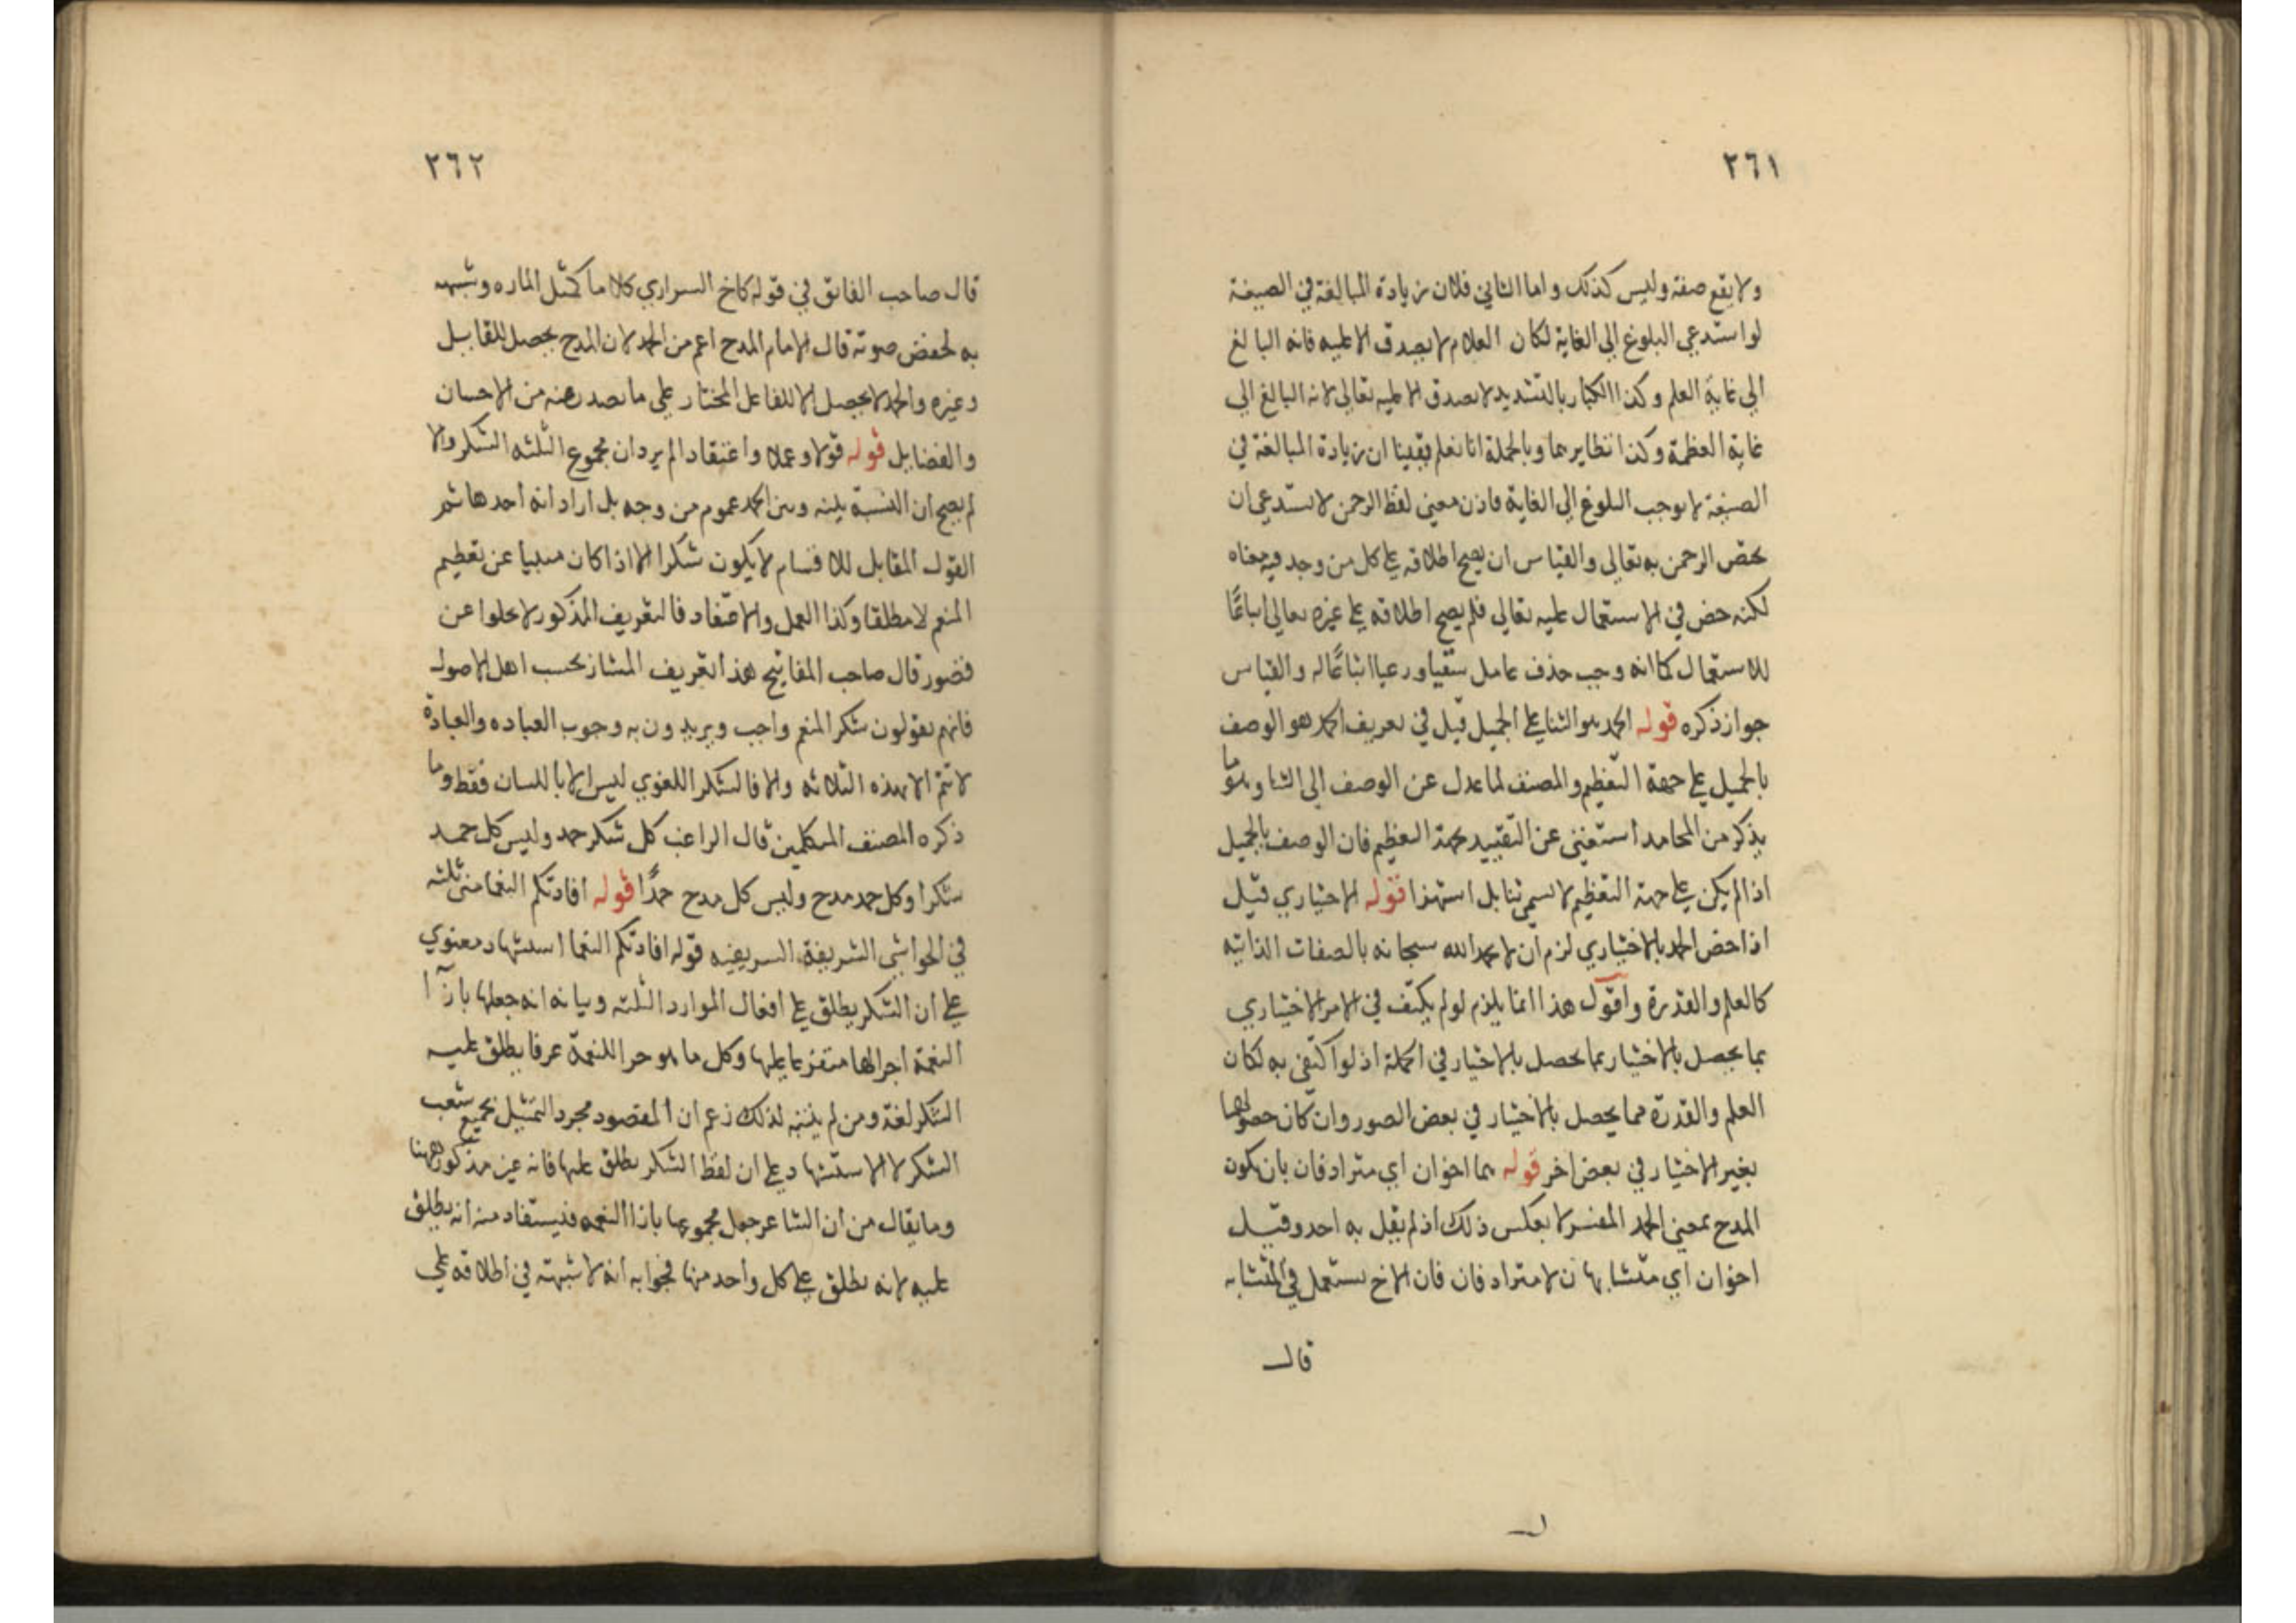 ٢٦١
ولا يقع صفة وليس كذلك واما الثاني فلان زيادة المبالغة في الصيغة
لو استدعي البلوغ الي الغاية لكان العلام لا يصدق الا عليه فانه البالغ
الي غاية العلم وكذا الكبار بالتشديد لا يصدق الا عليه تعالي لانه البالغ الي
غاية العظمة وكذا نظايرهما وبالجملة انا نعلم يقينا ان زيادة المبالغة في
الصيغة لا يوجب البلوغ الي الغاية فاذن معني لفظ الرحمن لا يستدعي ان
يخص الرحمن به تعالي والقياس ان يصح اطلاقه علي كل من وجد فيه معناه
لكنه خص في الاستعمال عليه تعالي فلم يصح اطلاقه علي غيره تعالي اتباعًا
للاستعمال كما انه وجب حذف عامل سقيا ورعيا اتباعًا له والقياس
جواز ذكره قوله الحمد هو الثنا علي الجميل قيل في تعريف الحمد هو الوصف
بالجميل علي جهة التعظيم والمصنف لما عدل عن الوصف الي الثنا وهو ما
يذكر من المحامد استغني عن التقييد بجهة التعظيم فان الوصف بالجميل
اذا لم يكن علي جهة التعظيم لا يسمي ثنا بل استهزا قوله الاختياري قيل
اذا خص الحمد بالاختياري لزم ان لا يحمد الله سبحانه بالصفات الذاتية
كالعلم والقدرة واقول هذا انما يلزم لو لم يكتف في الامر الاختياري
بما يحصل بالاختيار بما يحصل بالاختيار في الجملة اذ لو اكتفي به لكان
العلم والقدرة مما يحصل بالاختيار في بعض الصور وان كان حصولها
بغير الاختيار في بعض اخر قوله هما اخوان اي مترادفان بان يكون
المدح بمعني الحمد المفسر لا بعكس ذلك اذ لم يقل به احد وقيل
اخوان اي متشابهان لا مترادفان فان الاخ يستعمل في المتشابه
قال
٢٦٢
قال صاحب الفائق في قوله كاخ السراري كلاما كمثل الماره وشبهه
به لخفض صوته قال الامام المدح اعم من الحمد لان المدح يحصل للقابل
وغيره والحمد لا يحصل الا للفاعل المختار علي ما يصدر عنه من الاحسان
والفضايل قوله قولا وعملا واعتقادا لم يرد ان مجموع الثلثه الشكر والا
لم يصح ان النسبة بينه وبين الحمد عموم من وجه بل اراد انه احدها ثم
القول المقابل للاقسام لا يكون شكرا الا اذا كان منبيا عن تعظيم
المنعم لا مطلقا وكذا العمل والاعتقاد فالتعريف المذكور لا يخلوا عن
قصور قال صاحب المفاتيح هذا تعريف الشكر بحسب اهل الاصول
فانهم يقولون شكر المنعم واجب ويريدون به وجوب العباده والعبادة
لا تتم الا بهذه الثلاثه والا فالشكر اللغوي ليس الا باللسان فقط وما
ذكره المصنف المتكلمين قال الراغب كل شكر حمد وليس كل حمد
شكرا وكل حمد مدح وليس كل مدح حمدًا قوله افادتكم النعما مني ثلثه
في الحواشي الشريفة الشريفيه قوله افادتكم النعما استشهاد معنوي
علي ان الشكر يطلق علي افعال الموارد الثلثه وبيانه انه جعلها بازآ ا
النعمة اجرا لها متفرعا عليها وكل ما هو جزا للنعمة عرفا يطلق عليه
الشكر لغة ومن لم يتنبه لذلك زعم ان المقصود مجرد التمثيل بجميع شعب
الشكر لا الاستشهاد علي ان لفظ الشكر يطلق عليها فانه غير مذكور ههنا
وما يقال من ان الشاعر جعل مجموعها بازا النعمه فيستفاد منه انه يطلق
عليه لانه يطلق علي كل واحد منها فجوابه انه لا شبهة في اطلاقه علي